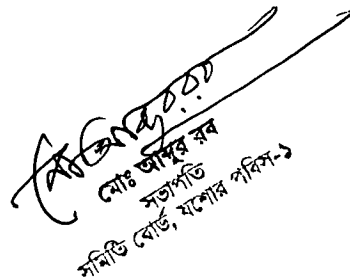 মোঃ আব্দুর রব
সভাপতি
সমিতি বোর্ড, যশোর পবিস-১